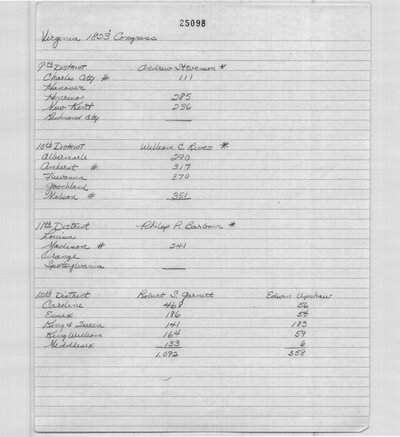 25098
Virginia 1823 Congress
9th District Andrew Stevenson *
Charles City # 111
Hanover
Henrico 285
New Kent 236
Richmond City ——
10th District William C. Rives *
Albemarle 290
Amherst # 317
Fluvanna 370
Goochland
Nelson # 351
11th District Philip P. Barbour *
Louisa
Madison # 241
Orange
Spotsylvania ——
12th District Robert S. Garnett Edwin Upshaw
Caroline 468 56
Essex 186 54
King & Queen 141 183
King William 164 59
Middlesex 133 6
1,092 358